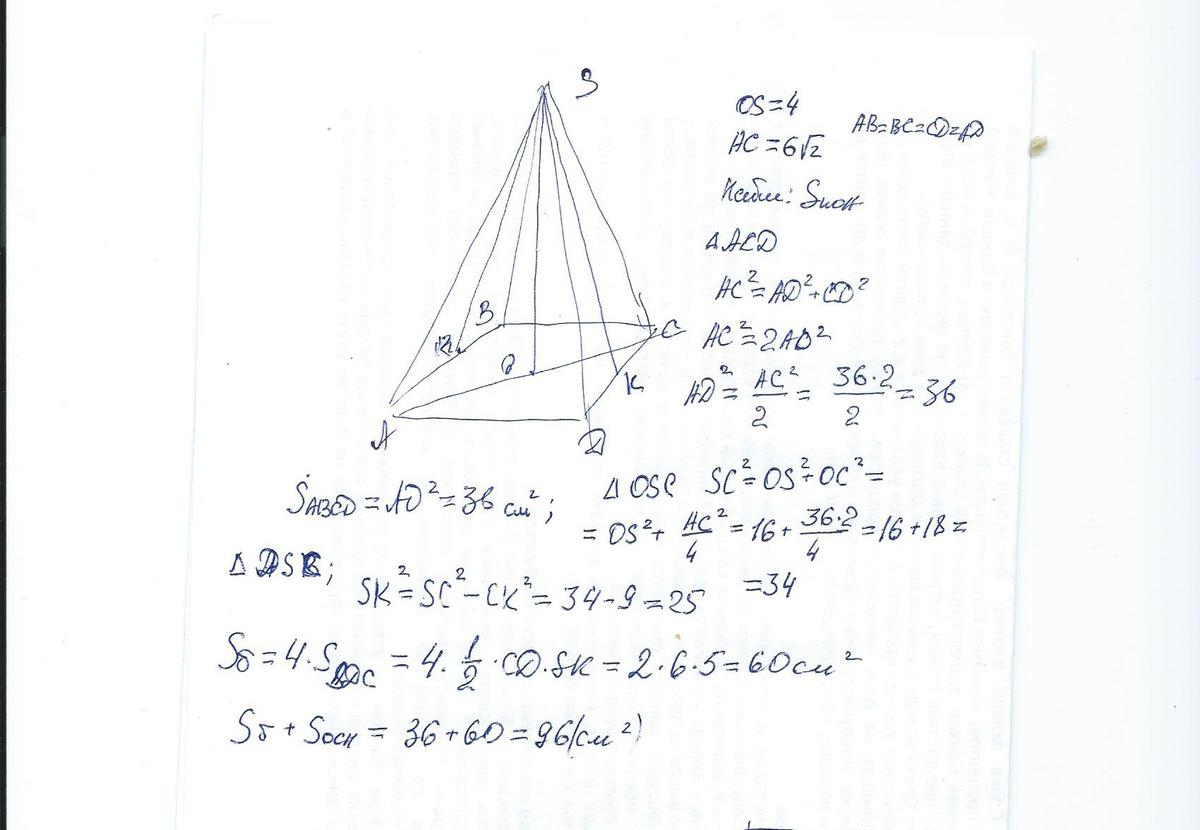 S
OS = 4
AB = BC = CD = AD
AC = 6√2
△ACD
AC² = AD² + CD²
B
C
O
K
AC² = 2AD²
AD² = AC²/2 = 36·2/2 = 36
A
D
S ABCD = AD² = 36 см²;
△ OSC SC² = OS² + OC² =
= OS² + AC²/4 = 16 + 36·2/4 = 16 + 18 =
= 34
SK² = SC² - CK² = 34 - 9 = 25
Sб = 4 · S = 4 · 1/2 · CD · SK = 2 · 6 · 5 = 60 см²
Sб + Sосн = 36 + 60 = 96 (см²)